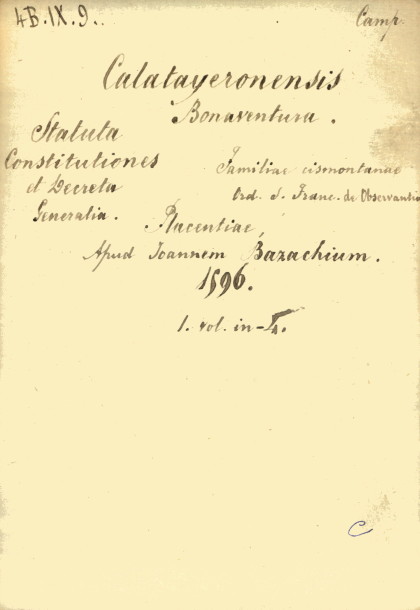 4B.IX.9. Camp.
Calatayeronensis
Bonaventura.
Statuta
Constitutiones
et Decreta
Generalia.
Familiae cismontanae
Ord. S. Franc. de Observantia
Placentiae,
Apud Joannem Bazachium.
1596.
1. vol. in-4.
C